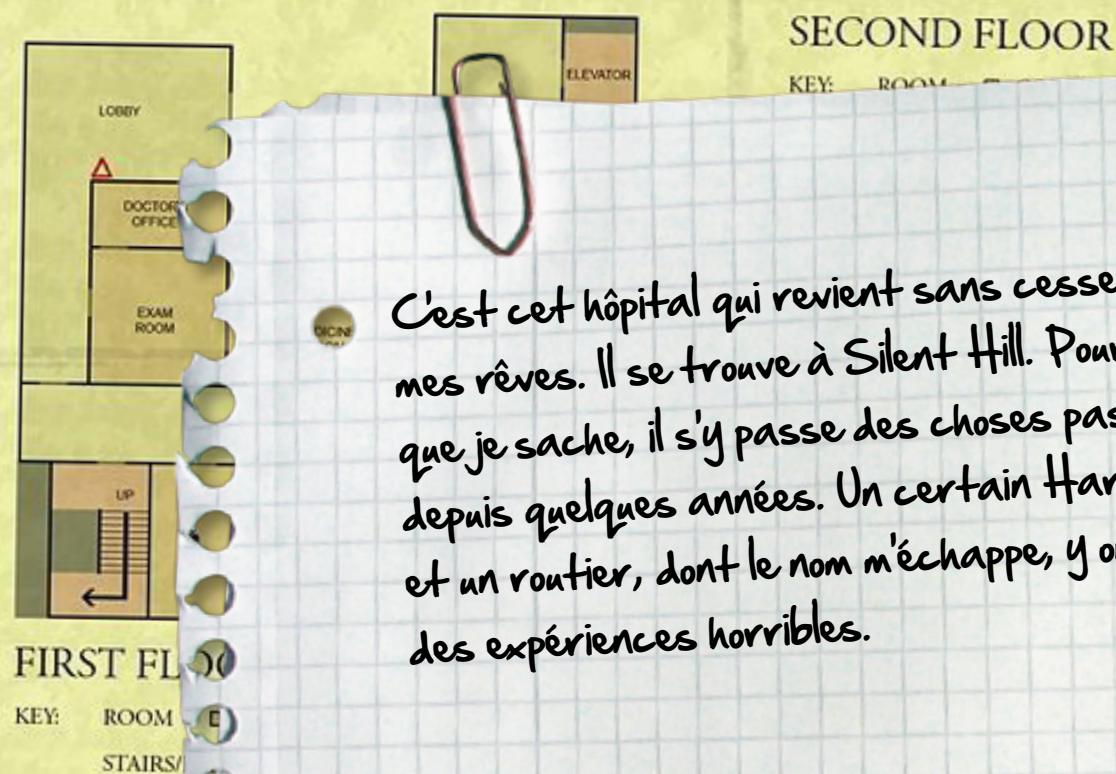 SECOND FLOOR
KEY: ROOM
ELEVATOR
LOBBY
DOCTOR
OFFICE
EXAM
ROOM
UP
FIRST FLOO
KEY: ROOM
STAIRS/
C'est cet hôpital qui revient sans cesse
mes rêves. Il se trouve à Silent Hill. Pour
que je sache, il s'y passe des choses pas
depuis quelques années. Un certain Har
et un routier, dont le nom m'échappe, y o
des expériences horribles.